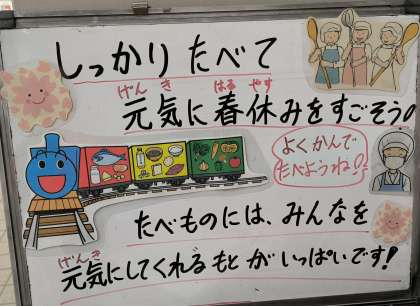 しっかり たべて
げん き はる やす
元気に 春休みをすごそう。
よく かんで
たべようね!
たべものには、みんなを
げんき
元気にしてくれる もと が いっぱいです!